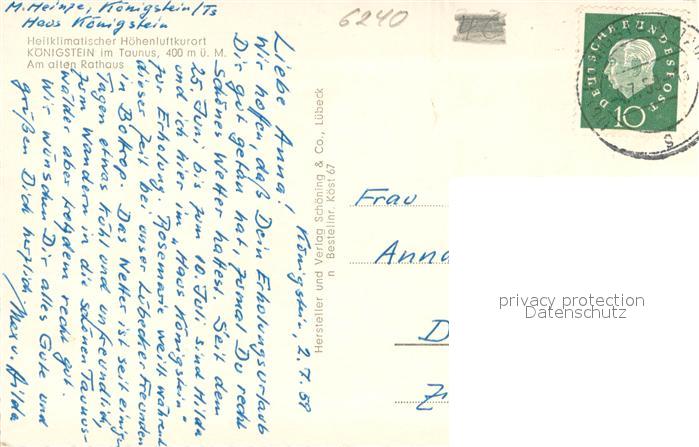 M. Heinze, Königstein/Ts
Haus Königstein
Heilklimatischer Höhenluftkurort
KÖNIGSTEIN im Taunus, 400 m ü. M.
Am alten Rathaus
6240
Königstein, 2.7.59
Liebe Anna!
Wir hofen, daß Dein Erholungsurlaub
Dir gut getan hat, zumal Du recht
schönes Wetter hattest. Seit dem
25. Juni bis zum 10. Juli sind Hilda
und ich hier im „Haus Königstein"
zur Erholung. Rosemarie weilt während
dieser Zeit bei unser Lübecker Freunden
in Bottrop. Das Wetter ist seit einigen
Tagen etwas kühl und unfreundlich,
zum Wandern in die schönen Taunus-
wälder aber trotzdem recht gut.
Wir wünschen Dir alles Gute und
grüßen Dich herzlich
Max u. Hilda
Hersteller und Verlag Schöning & Co., Lübeck
n Bestellnr. Köst 67
DEUTSCHE BUNDESPOST
10
Frau
Anna
D
Z
privacy protection
Datenschutz